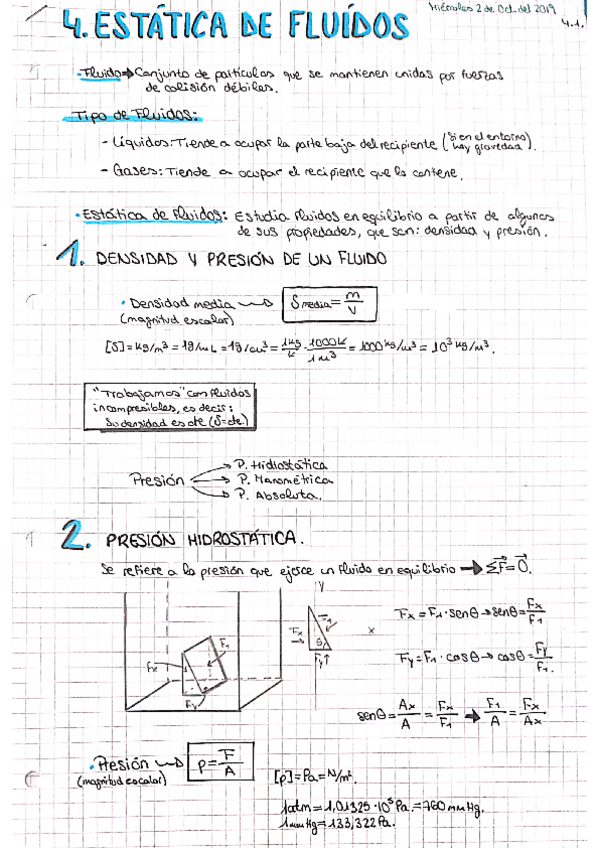 Miércoles 2 de Oct. del 2019
4.1.
4. ESTÁTICA DE FLUÍDOS
· Fluido → Conjunto de partículas que se mantienen unidas por fuerzas
de colisión débiles.
Tipo de Fluidos:
- Líquidos: Tiende a ocupar la parte baja del recipiente (Si en el entorno hay gravedad).
- Gases: Tiende a ocupar el recipiente que lo contiene.
· Estática de Fluidos: Estudia fluidos en equilibrio a partir de algunas
de sus propiedades, que son: densidad y presión.
1. DENSIDAD Y PRESIÓN DE UN FLUIDO
· Densidad media → δmedia = m/V
(magnitud escalar)
[δ] = kg/m³ = 1g/mL = 1g/cm³ = 1kg/L · 1000L/1m³ = 1000 kg/m³ = 10³ kg/m³.
"Trabajamos" con fluidos
incompresibles, es decir:
Su densidad es cte (δ=cte.)
Presión → P. Hidiostática
→ P. Manométrica
→ P. Absoluta.
2. PRESIÓN HIDROSTÁTICA.
Se refiere a la presión que ejerce un fluido en equilibrio → ΣF⃗ = 0⃗.
Fx F1 Fy
Y Fx F1 θ Fy x
Fx = F1 · senθ → senθ = Fx/F1
Fy = F1 · cosθ → cosθ = Fy/F1.
senθ = Ax/A = Fx/F1 → F1/A = Fx/Ax
· Presión → p = F/A
(magnitud escalar)
[p] = Pa = N/m².
1atm = 1,01325 · 10⁵ Pa. = 760 mmHg.
1mmHg = 133,322 Pa.